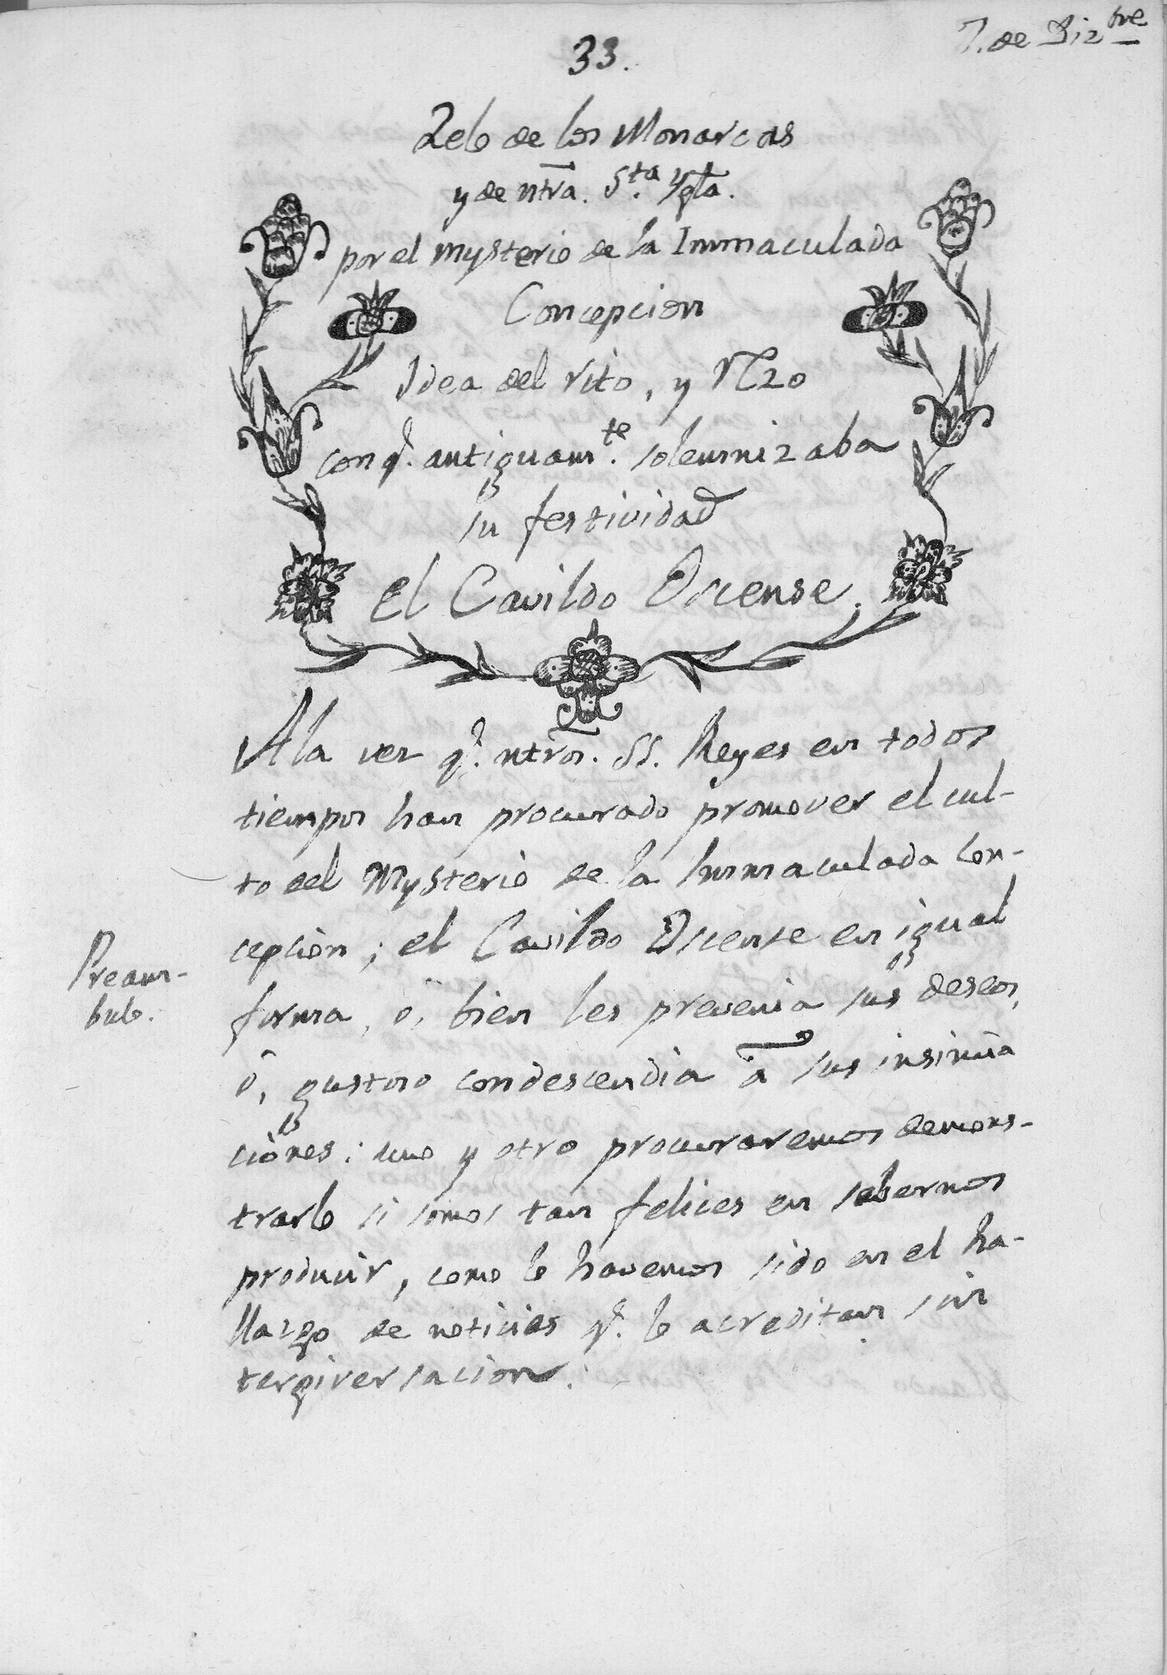 7. de Diz.bre
33.
Zelo de los Monarcas
y de ntra. S.ta Ygla.
por el mysterio de la Immaculada
Concepcion
Idea del rito, y
con q. antiguam.te solemnizaba
su festividad
el Cavildo Oscense.
A la ver q. ntros. SS. Reyes en todos
tiempos han procurado promover el cul-
to del Mysterio de la Immaculada Con-
cepcion; el Cavildo Oscense en igual
Pream-
bulo.
forma, ò, bien les prevenia sus deseos,
ò, gustoso condescendia à sus insinua
ciones: uno y otro procuraremos demons-
trarlo si somos tan felices en sabernos
producir, como lo havemos sido en el ha-
llazgo de noticias q. lo acreditan sin
tergiversacion.